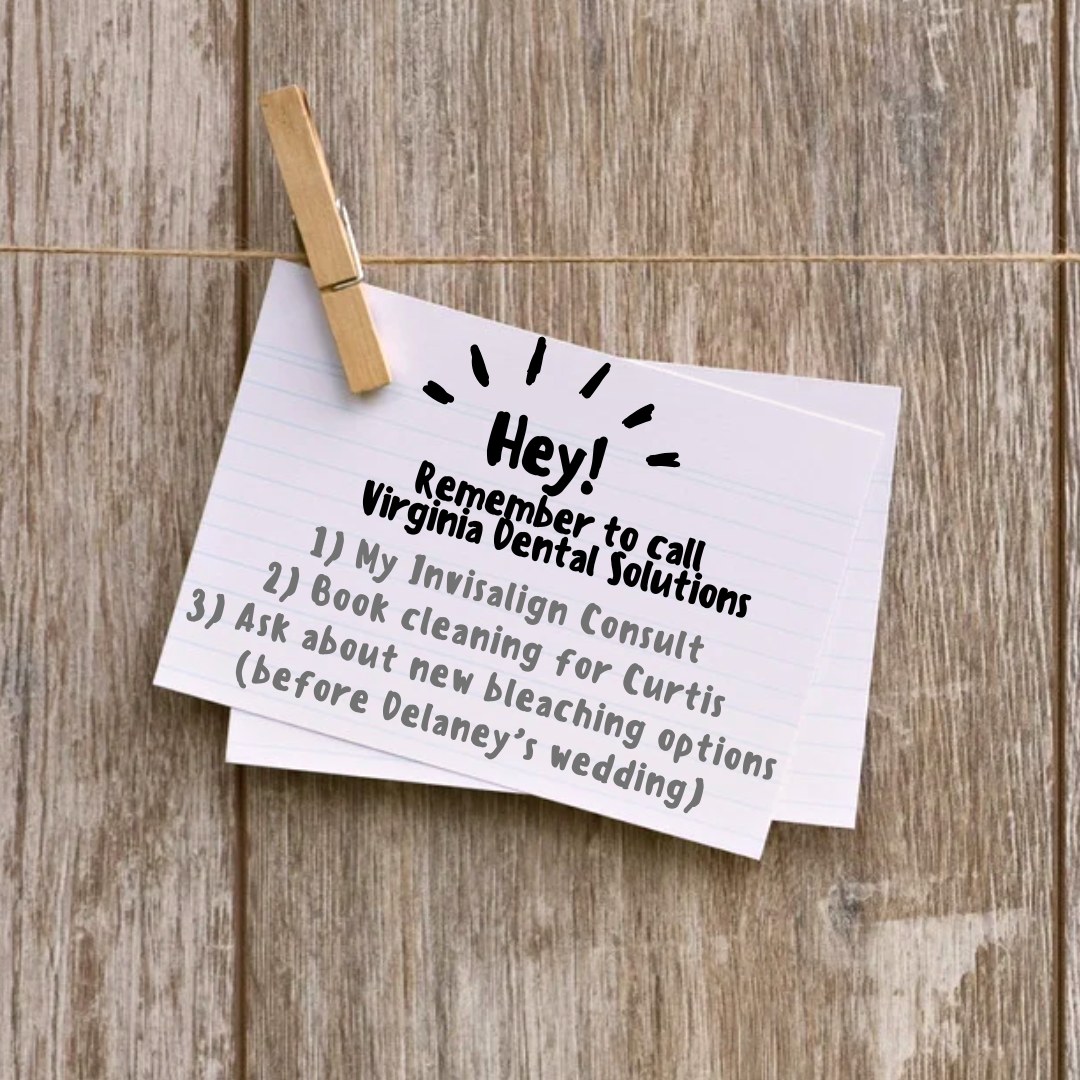 Hey!
Remember to call
Virginia Dental Solutions
1) My Invisalign Consult
2) Book cleaning for Curtis
3) Ask about new bleaching options
(before Delaney's wedding)